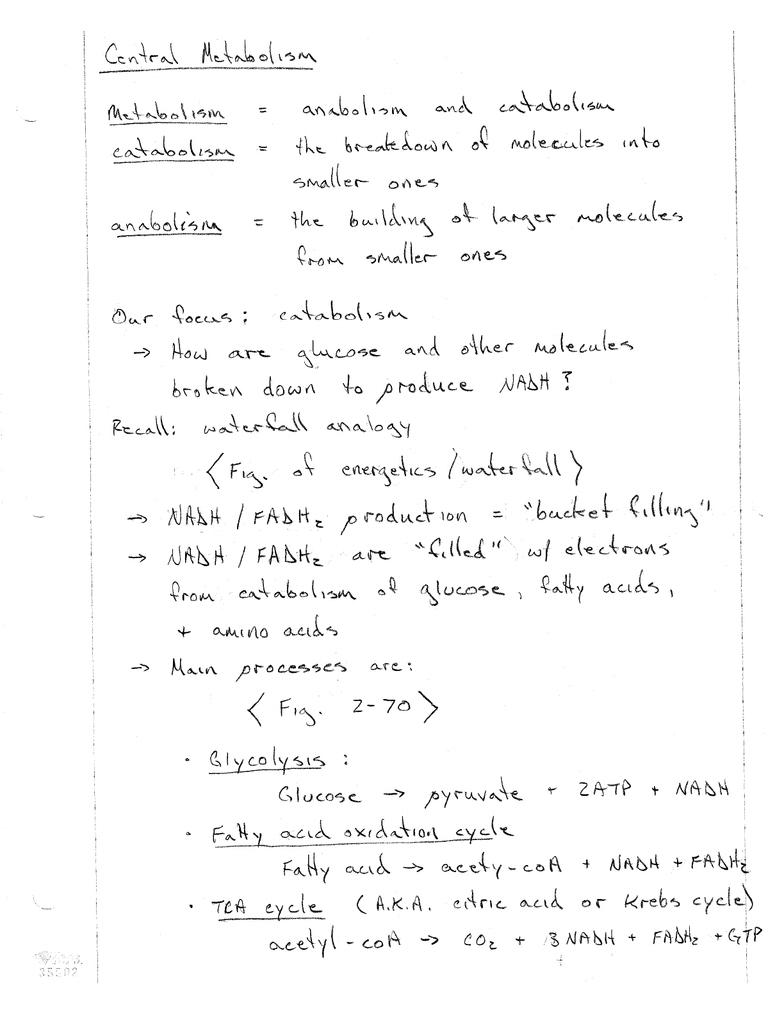 Central Metabolism
Metabolism = anabolism and catabolism
catabolism = the breakdown of molecules into
smaller ones
anabolism = the building of larger molecules
from smaller ones
Our focus: catabolism
→ How are glucose and other molecules
broken down to produce NADH?
Recall: waterfall analogy
< Fig. of energetics / waterfall >
→ NADH / FADH₂ production = "bucket filling"
→ NADH / FADH₂ are "filled" w/ electrons
from catabolism of glucose, fatty acids,
+ amino acids
→ Main processes are:
< Fig. 2-70 >
• Glycolysis:
Glucose → pyruvate + 2ATP + NADH
• Fatty acid oxidation cycle
Fatty acid → acety-coA + NADH + FADH₂
• TCA cycle (A.K.A. citric acid or Krebs cycle)
acetyl-coA → CO₂ + 3 NADH + FADH₂ + GTP
35502